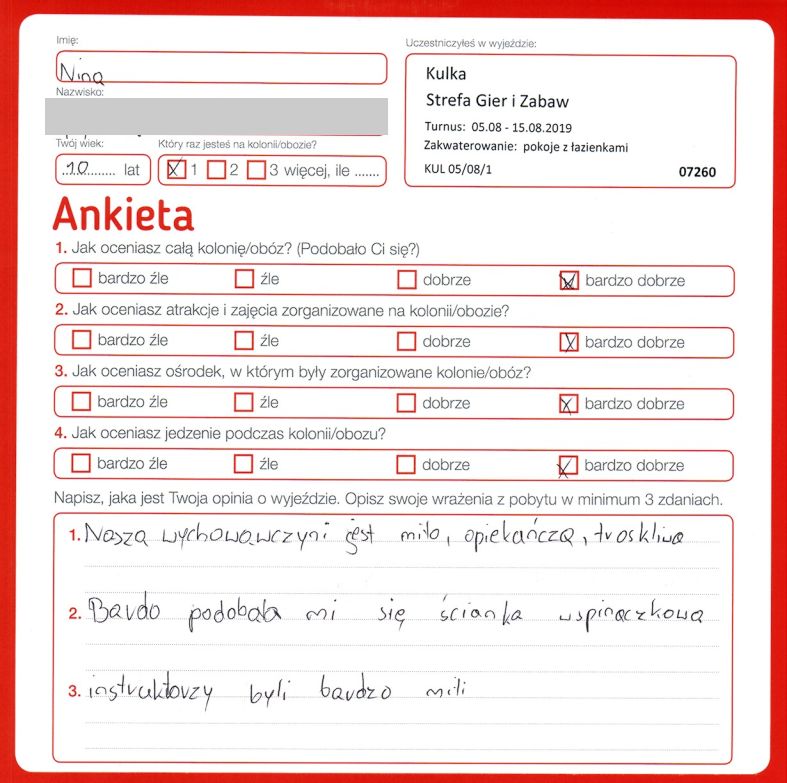 Imię:
Nina
Nazwisko:
Twój wiek:
10 lat
Który raz jesteś na kolonii/obozie?
X 1 2 3 więcej, ile .......
Uczestniczyłeś w wyjeździe:
Kulka
Strefa Gier i Zabaw
Turnus: 05.08 - 15.08.2019
Zakwaterowanie: pokoje z łazienkami
KUL 05/08/1 07260
Ankieta
1. Jak oceniasz całą kolonię/obóz? (Podobało Ci się?)
bardzo źle źle dobrze X bardzo dobrze
2. Jak oceniasz atrakcje i zajęcia zorganizowane na kolonii/obozie?
bardzo źle źle dobrze X bardzo dobrze
3. Jak oceniasz ośrodek, w którym były zorganizowane kolonie/obóz?
bardzo źle źle dobrze X bardzo dobrze
4. Jak oceniasz jedzenie podczas kolonii/obozu?
bardzo źle źle dobrze X bardzo dobrze
Napisz, jaka jest Twoja opinia o wyjeździe. Opisz swoje wrażenia z pobytu w minimum 3 zdaniach.
1. Nasza wychowawczyni jest miła, opiekańcza, troskliwa
2. Bardo podobała mi się ścianka wspinaczkowa
3. instruktorzy byli bardzo mili